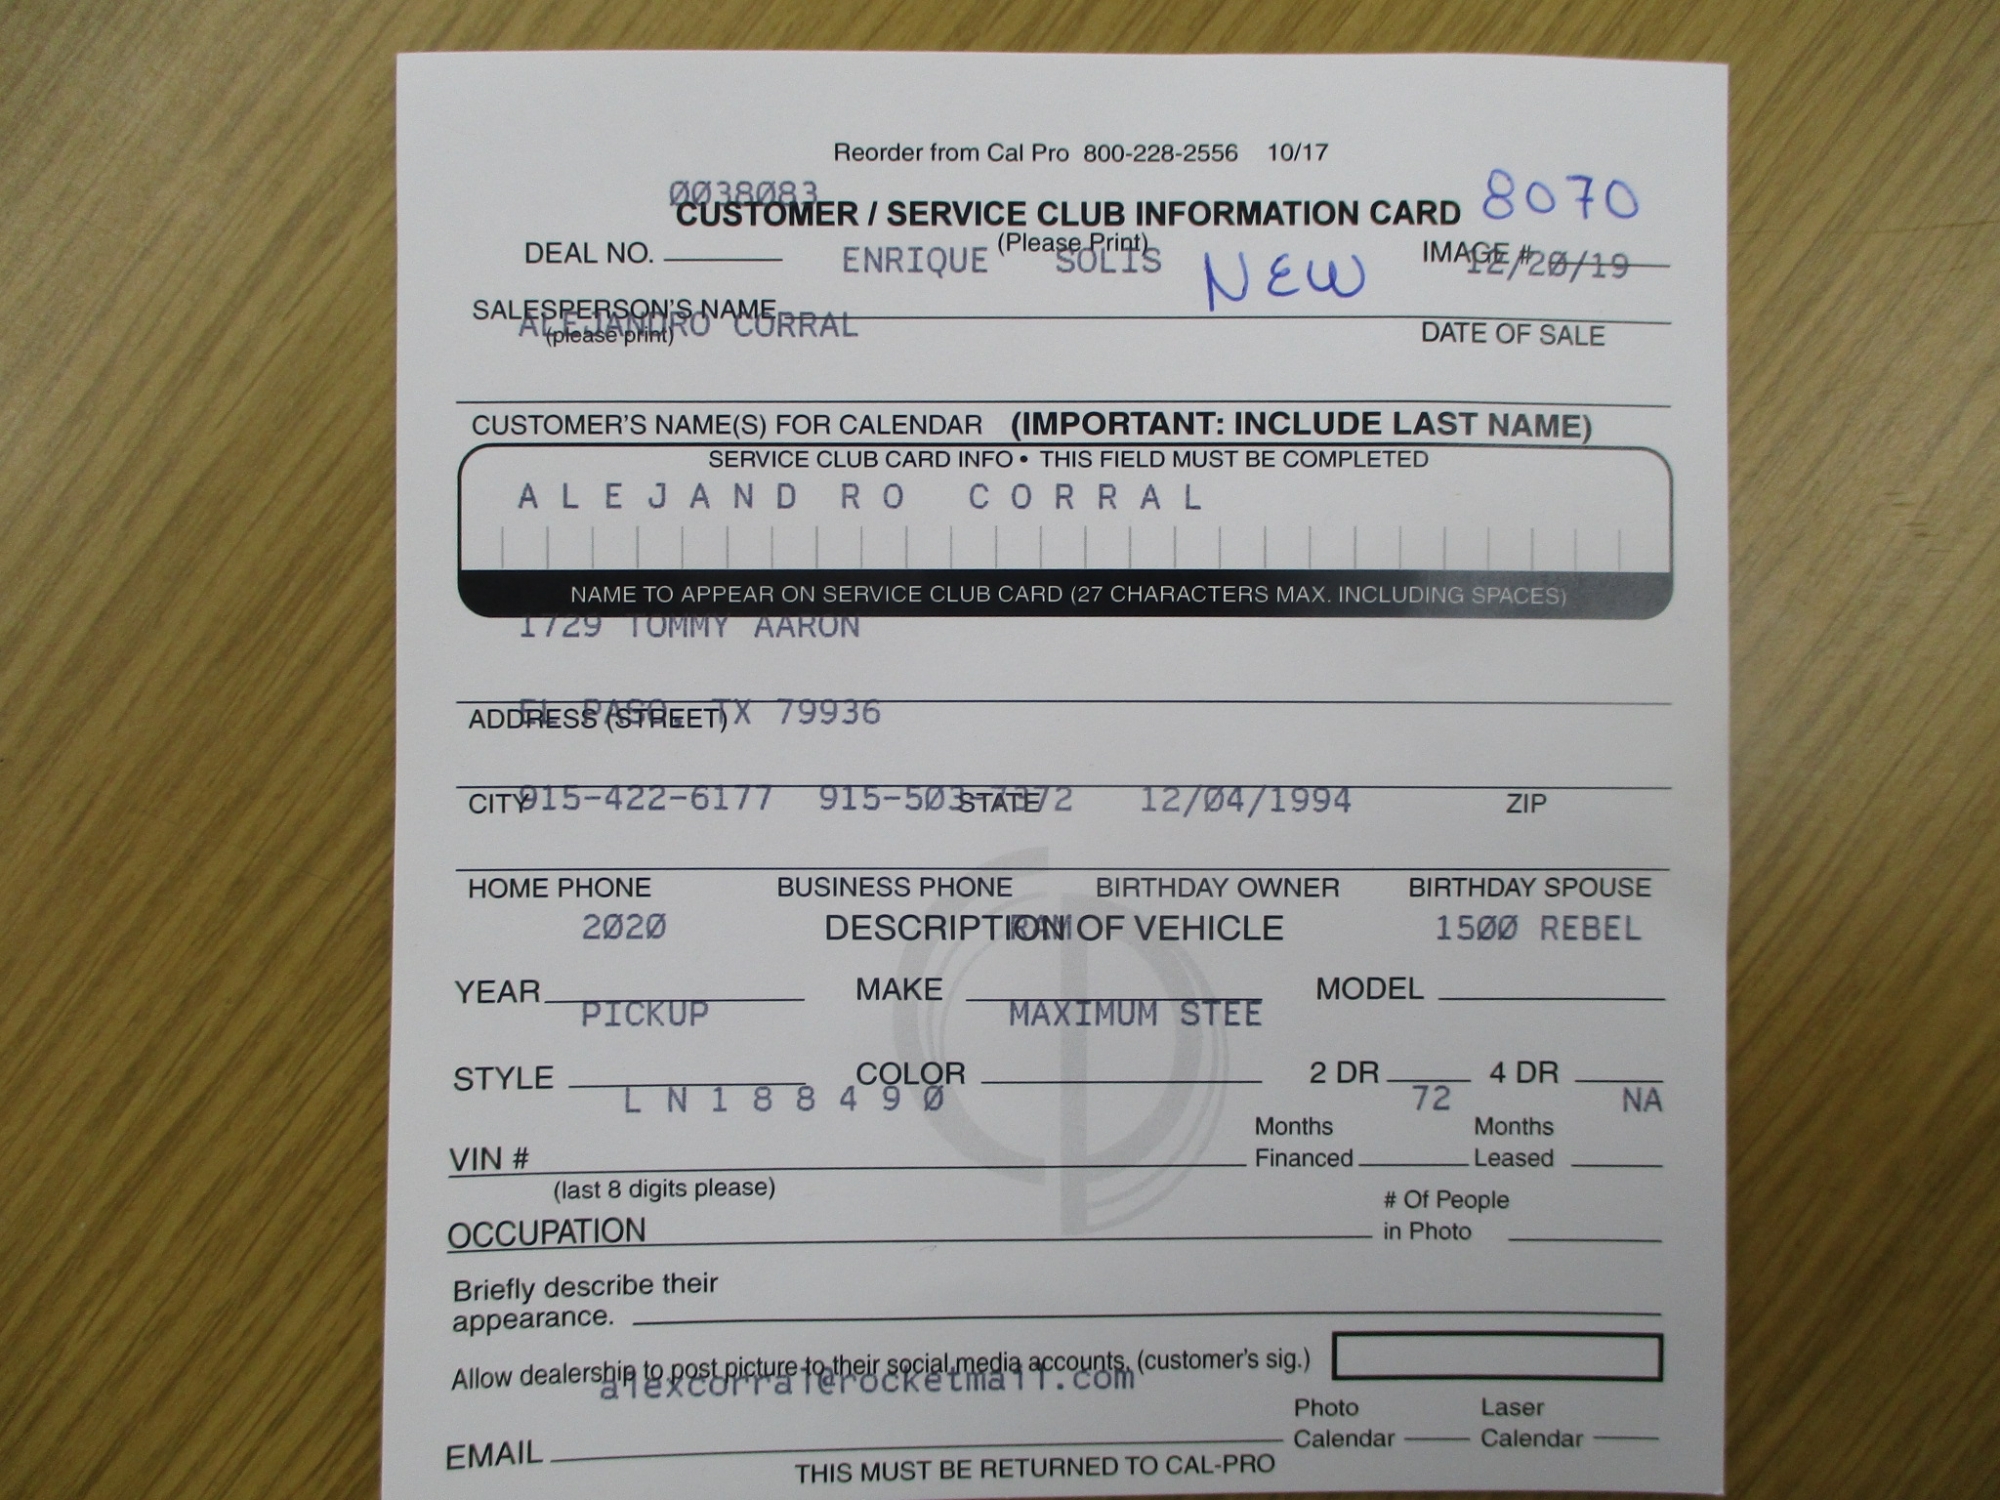 Reorder from Cal Pro 800-228-2556 10/17
0038083
CUSTOMER / SERVICE CLUB INFORMATION CARD 8070
(Please Print)
DEAL NO. ENRIQUE SOLIS NEW IMAGE # 12/20/19
SALESPERSON'S NAME
(please print)
ALEJANDRO CORRAL
DATE OF SALE
CUSTOMER'S NAME(S) FOR CALENDAR (IMPORTANT: INCLUDE LAST NAME)
SERVICE CLUB CARD INFO • THIS FIELD MUST BE COMPLETED
ALEJAND RO CORRAL
NAME TO APPEAR ON SERVICE CLUB CARD (27 CHARACTERS MAX. INCLUDING SPACES)
1729 TOMMY AARON
EL PASO, TX 79936
ADDRESS (STREET)
915-422-6177 915-503- 12/04/1994
CITY STATE ZIP
HOME PHONE BUSINESS PHONE BIRTHDAY OWNER BIRTHDAY SPOUSE
2020 RAM 1500 REBEL
DESCRIPTION OF VEHICLE
YEAR MAKE MODEL
PICKUP MAXIMUM STEE
STYLE COLOR 2 DR 4 DR
LN188490 72 NA
VIN # Months Financed Months Leased
(last 8 digits please)
OCCUPATION # Of People in Photo
Briefly describe their
appearance.
Allow dealership to post picture to their social media accounts, (customer's sig.)
alexcorral@rocketmail.com
EMAIL Photo Calendar Laser Calendar
THIS MUST BE RETURNED TO CAL-PRO